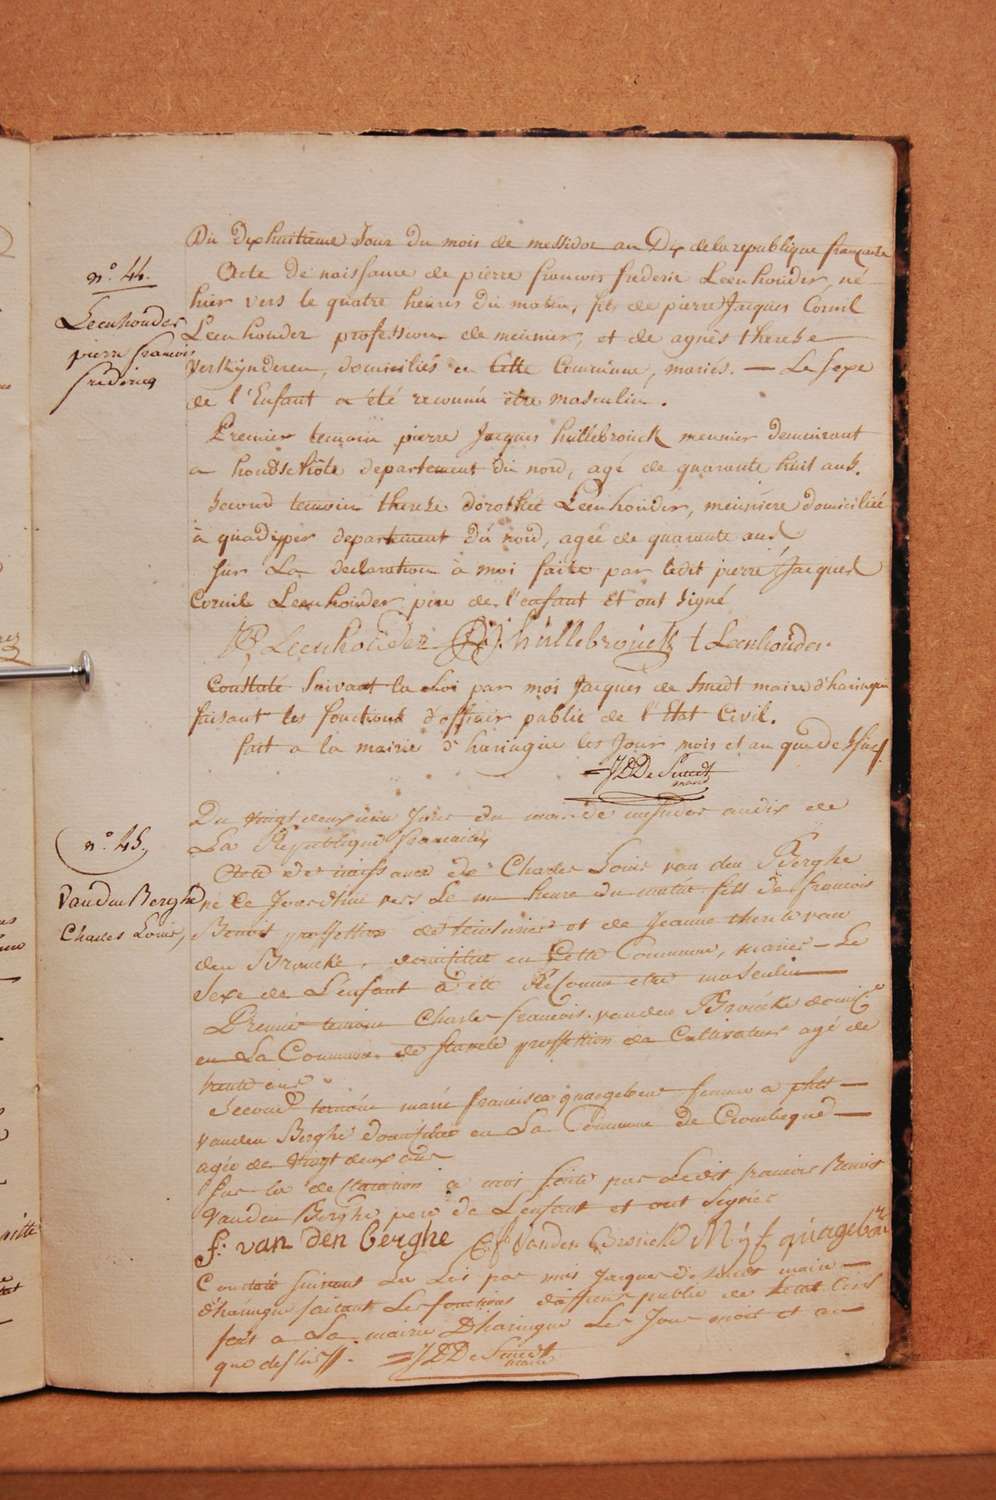 Du Dixhuitieme Jour Du mois de messidor an Dix de la republique françaíse
n.° 44.
Acte De naissance de pierre francois frederic Leenhouder, né
hier vers le quatre heures du matin, fils de pierre Jacques Cornil
Leenhouder
pierre francois
fredericq
Leenhouder profession de meunier, et de agnès therese
Verkÿnderen, domiciliés en Cette Commune, mariés. — Le sexe
de l'Enfant a été reconnú être masculin.
Premier temoin pierre Jacques hullebrouck meunier demeurant
a hondschôte departement du nord, agé de quarante huit ans.
second temoin therese dorothée Leenhouder, meunière domiciliée
à quadÿper departement dú nord, ageé de quarante ans
sur La declaration à moi faite par ledit pierre Jacques
Cornil Leenhouder pere de l'enfant Et ont signé
Leenhouder hullebrouck t Leenhouder
Constaté Suivant la Loi par moi Jacques de Smedt maire d'haringue
faisant les fonctions d'officier public de l'Etat Civil.
fait a la mairie d'haringue les Jour mois et an que dessus
JDDe Smedt
maire
Du vingt deuxieme Jour du mois de messidor an dix de
La Republique francaise
n.° 45.
Acte de naissance de Charles Louis van den Berghe
Vanden Berghe
Charles Louis,
né Ce Jourd'hui vers Le heure du matin fils de francois
Benoit profession de teinturier et de Jeanne therese van
den Broucke, domicilies en Cette Commune, mariés — Le
Sexe de L'enfant a été Reconnu etre masculin
Premier temoin Charles francois vanden Broucke domicilié
en La Commune de stavele proffession de Cultivateur agé de
trente ans
Second temoin marie francisca quagebeur femme a
vanden Berghe domicilie en La Commune de Crombeque —
agée de vingt deux ans
Sur la declaration a moi faite par Ledit francois Benoit
Vanden Berghe pere de L'enfant et ont Signés
f: van den berghe C:f Vanden Broucke M:j f quagebur
Constaté suivant La Loi par moi Jacques De Smedt maire —
d'haringue faisant Les fonctions d'officier public de L'etat Civil
fait a La mairie D'haringue Les Jour mois et an —
que dessus.
JDDe Smedt
maire